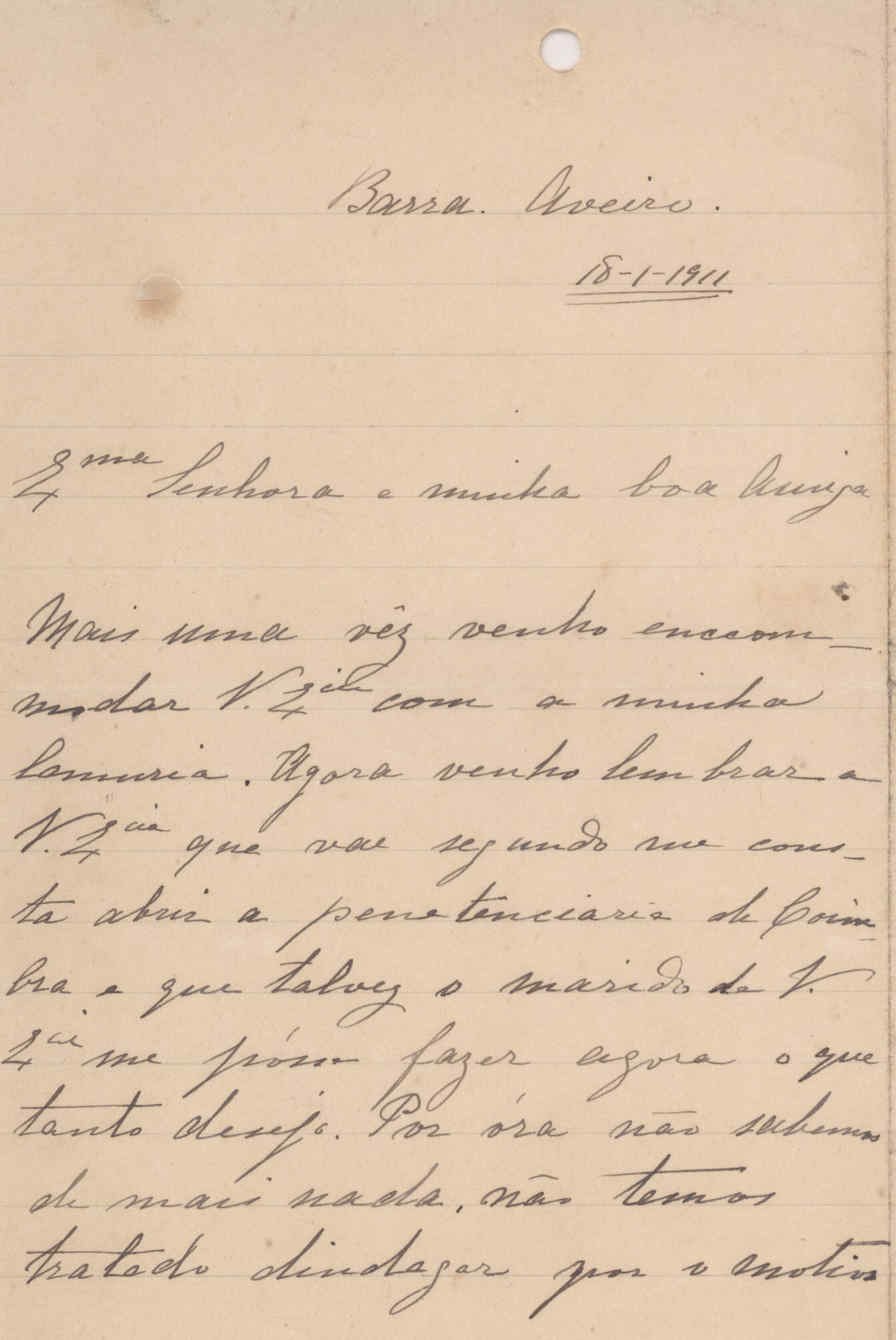 Barra. Aveiro.
18-1-1911
Exma Senhora e minha boa Amiga
Mais uma vêz venho encom-
modar V. Excia com a minha
lamuria. Agora venho lembrar a
V. Excia que vae segundo me cons-
ta abrir a penetenciaria de Coim-
bra e que talvez o marido de V.
Excia me póssa fazer agora o que
tanto desejo. Por óra não sabemos
de mais nada, não temos
tratado dindagar por o motivo